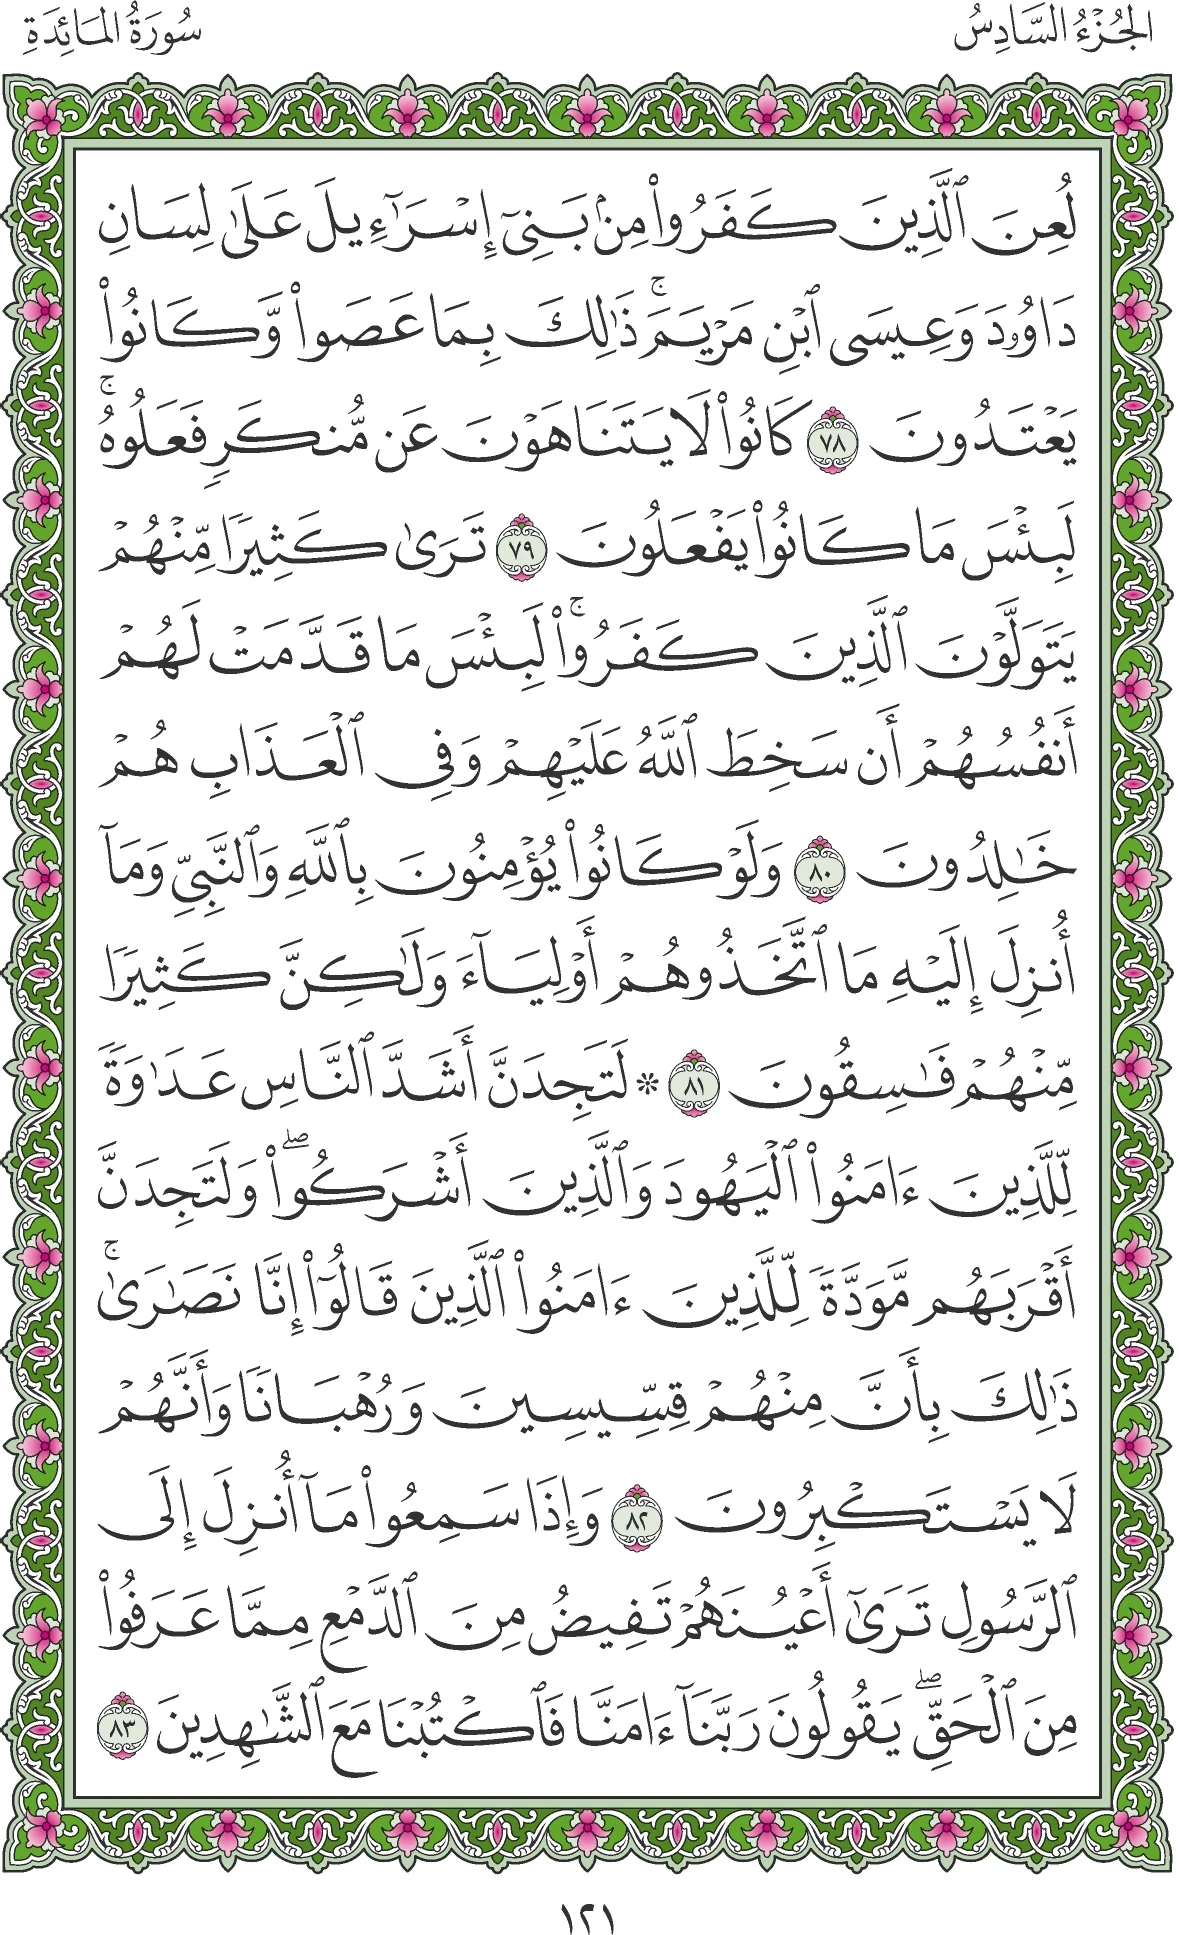 الجُزْءُ السَّادِسُ
سُورَةُ المَائِدَةِ
لُعِنَ ٱلَّذِينَ كَفَرُوا۟ مِنۢ بَنِىٓ إِسْرَٰٓءِيلَ عَلَىٰ لِسَانِ
دَاوُۥدَ وَعِيسَى ٱبْنِ مَرْيَمَ ۚ ذَٰلِكَ بِمَا عَصَوا۟ وَّكَانُوا۟
يَعْتَدُونَ ٧٨ كَانُوا۟ لَا يَتَنَاهَوْنَ عَن مُّنكَرٍ فَعَلُوهُ ۚ
لَبِئْسَ مَا كَانُوا۟ يَفْعَلُونَ ٧٩ تَرَىٰ كَثِيرًا مِّنْهُمْ
يَتَوَلَّوْنَ ٱلَّذِينَ كَفَرُوا۟ ۚ لَبِئْسَ مَا قَدَّمَتْ لَهُمْ
أَنفُسُهُمْ أَن سَخِطَ ٱللَّهُ عَلَيْهِمْ وَفِى ٱلْعَذَابِ هُمْ
خَـٰلِدُونَ ٨٠ وَلَوْ كَانُوا۟ يُؤْمِنُونَ بِٱللَّهِ وَٱلنَّبِىِّ وَمَآ
أُنزِلَ إِلَيْهِ مَا ٱتَّخَذُوهُمْ أَوْلِيَآءَ وَلَـٰكِنَّ كَثِيرًا
مِّنْهُمْ فَـٰسِقُونَ ٨١ * لَتَجِدَنَّ أَشَدَّ ٱلنَّاسِ عَدَٰوَةً
لِّلَّذِينَ ءَامَنُوا۟ ٱلْيَهُودَ وَٱلَّذِينَ أَشْرَكُوا۟ ۖ وَلَتَجِدَنَّ
أَقْرَبَهُم مَّوَدَّةً لِّلَّذِينَ ءَامَنُوا۟ ٱلَّذِينَ قَالُوٓا۟ إِنَّا نَصَـٰرَىٰ ۚ
ذَٰلِكَ بِأَنَّ مِنْهُمْ قِسِّيسِينَ وَرُهْبَانًا وَأَنَّهُمْ
لَا يَسْتَكْبِرُونَ ٨٢ وَإِذَا سَمِعُوا۟ مَآ أُنزِلَ إِلَى
ٱلرَّسُولِ تَرَىٰٓ أَعْيُنَهُمْ تَفِيضُ مِنَ ٱلدَّمْعِ مِمَّا عَرَفُوا۟
مِنَ ٱلْحَقِّ ۖ يَقُولُونَ رَبَّنَآ ءَامَنَّا فَٱكْتُبْنَا مَعَ ٱلشَّـٰهِدِينَ ٨٣
١٢١